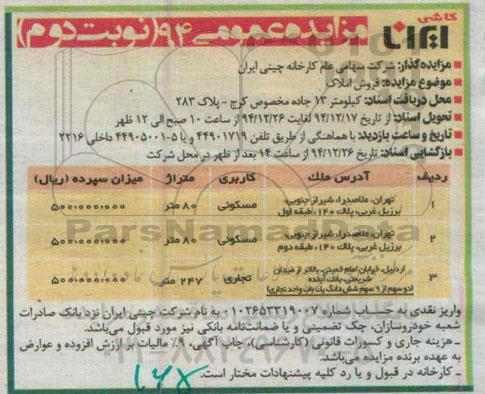 کاشی
ایرانا
مزایده عمومی ۹۴ (نوبت دوم)
مزایده‌گذار: شرکت سهامی عام کارخانه چینی ایران
موضوع مزایده: فروش املاک
محل دریافت اسناد: کیلومتر ۱۳ جاده مخصوص کرج - پلاک ۲۸۳
تحویل اسناد: از تاریخ ۹۴/۱۲/۱۷ لغایت ۹۴/۱۲/۲۶ از ساعت ۱۰ صبح الی ۱۲ ظهر
تاریخ و ساعت بازدید: با هماهنگی از طریق تلفن ۴۴۹۰۱۷۱۹ و یا ۵-۴۴۹۰۵۰۰۱ داخلی ۲۲۱۶
بازگشایی اسناد: از تاریخ ۹۴/۱۲/۲۶ از ساعت ۱۴ بعد از ظهر در محل شرکت
ردیف آدرس ملک کاربری متراژ میزان سپرده (ریال)
۱ تهران، ملاصدرا، شیراز جنوبی، برزیل غربی، پلاک ۱۴۰، طبقه اول مسکونی ۸۰ متر ۵۰۰،۰۰۰،۰۰۰
۲ تهران، ملاصدرا، شیراز جنوبی، برزیل غربی، پلاک ۱۴۰، طبقه دوم مسکونی ۸۰ متر ۵۰۰،۰۰۰،۰۰۰
۳ اردبیل، خیابان امام خمینی، بالاتر از میدان شریعتی، بانک آینده (دو سهم از ۹ سهم شش دانگ یک باب واحد تجاری) تجاری ۲۴۷ متر ۵۰۰،۰۰۰،۰۰۰
واریز نقدی به حساب شماره ۰۱۰۲۶۵۳۳۱۹۰۰۷ به نام شرکت چینی ایران نزد بانک صادرات
شعبه خودروسازان، چک تضمینی و یا ضمانت‌نامه بانکی نیز مورد قبول می‌باشد.
ـ هزینه جاری و کسورات قانونی (کارشناسی)، چاپ آگهی، ۹٪ مالیات بر ارزش افزوده و عوارض
به عهده برنده مزایده می‌باشد.
ـ کارخانه در قبول و یا رد کلیه پیشنهادات مختار است.
ParsNamadData